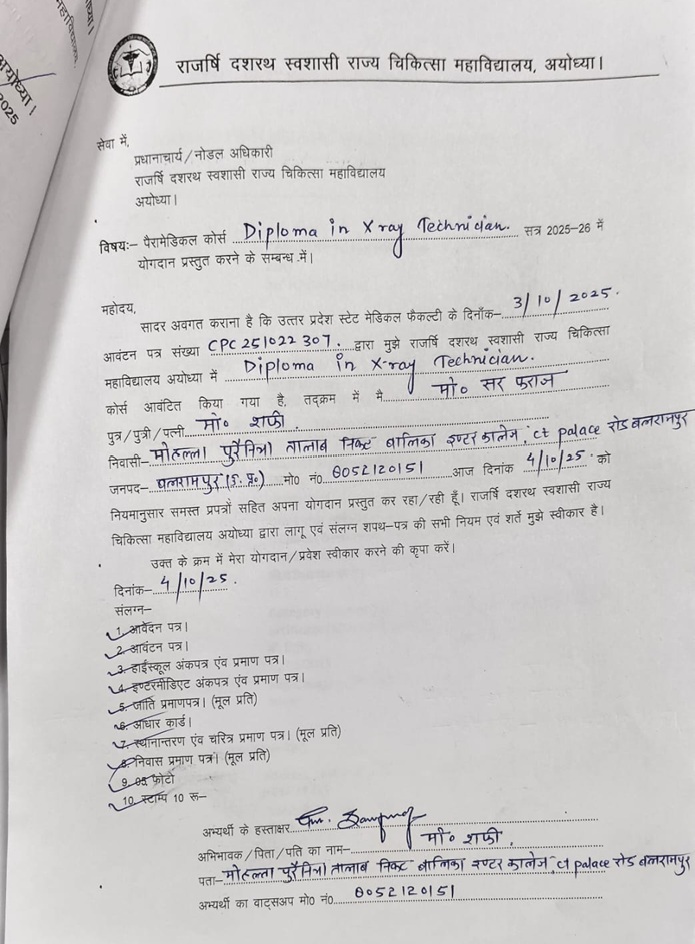 महाविद्यालय,
ध्या।
अयोध्या।
2025
राजर्षि दशरथ स्वशासी राज्य चिकित्सा महाविद्यालय, अयोध्या।
सेवा में,
प्रधानाचार्य/नोडल अधिकारी
राजर्षि दशरथ स्वशासी राज्य चिकित्सा महाविद्यालय
अयोध्या।
विषयः– पैरामेडिकल कोर्स Diploma in X ray Technician. सत्र 2025–26 में
योगदान प्रस्तुत करने के सम्बन्ध में।
महोदय,
सादर अवगत कराना है कि उत्तर प्रदेश स्टेट मेडिकल फैकल्टी के दिनाँक– 3/10/2025.
आवंटन पत्र संख्या CPC 251022 307. द्वारा मुझे राजर्षि दशरथ स्वशासी राज्य चिकित्सा
महाविद्यालय अयोध्या में Diploma in X-ray Technician.
कोर्स आवंटित किया गया है, तद्क्रम में मै मो० सर फराज
पुत्र/पुत्री/पत्नी मो० शफी.
निवासी– मोहल्ला पुरैनिया तालाब निकट बालिका इण्टर कालेज, ct palace रोड बलरामपुर
जनपद– बलरामपुर (उ.प्र.) मो० नं० 8052120151 आज दिनांक 4/10/25. को
नियमानुसार समस्त प्रपत्रों सहित अपना योगदान प्रस्तुत कर रहा/रही हूँ। राजर्षि दशरथ स्वशासी राज्य
चिकित्सा महाविद्यालय अयोध्या द्वारा लागू एवं संलग्न शपथ-पत्र की सभी नियम एवं शर्ते मुझे स्वीकार है।
उक्त के क्रम में मेरा योगदान/प्रवेश स्वीकार करने की कृपा करें।
दिनांक– 4/10/25.
संलग्न–
1. आवेदन पत्र।
2. आवंटन पत्र।
3. हाईस्कूल अंकपत्र एंव प्रमाण पत्र।
4. इण्टरमीडिएट अंकपत्र एंव प्रमाण पत्र।
5. जाति प्रमाणपत्र। (मूल प्रति)
6. आधार कार्ड।
7. स्थानान्तरण एंव चरित्र प्रमाण पत्र। (मूल प्रति)
8. निवास प्रमाण पत्र। (मूल प्रति)
9. 05 फ़ोटो
10. स्टाम्प 10 रू–
अभ्यर्थी के हस्ताक्षर
अभिभावक/पिता/पति का नाम– मो० शफी.
पता– मोहल्ला पुरैनिया तालाब निकट बालिका इण्टर कालेज, ct palace रोड बलरामपुर
अभ्यर्थी का वाट्सअप मो० नं० 8052120151